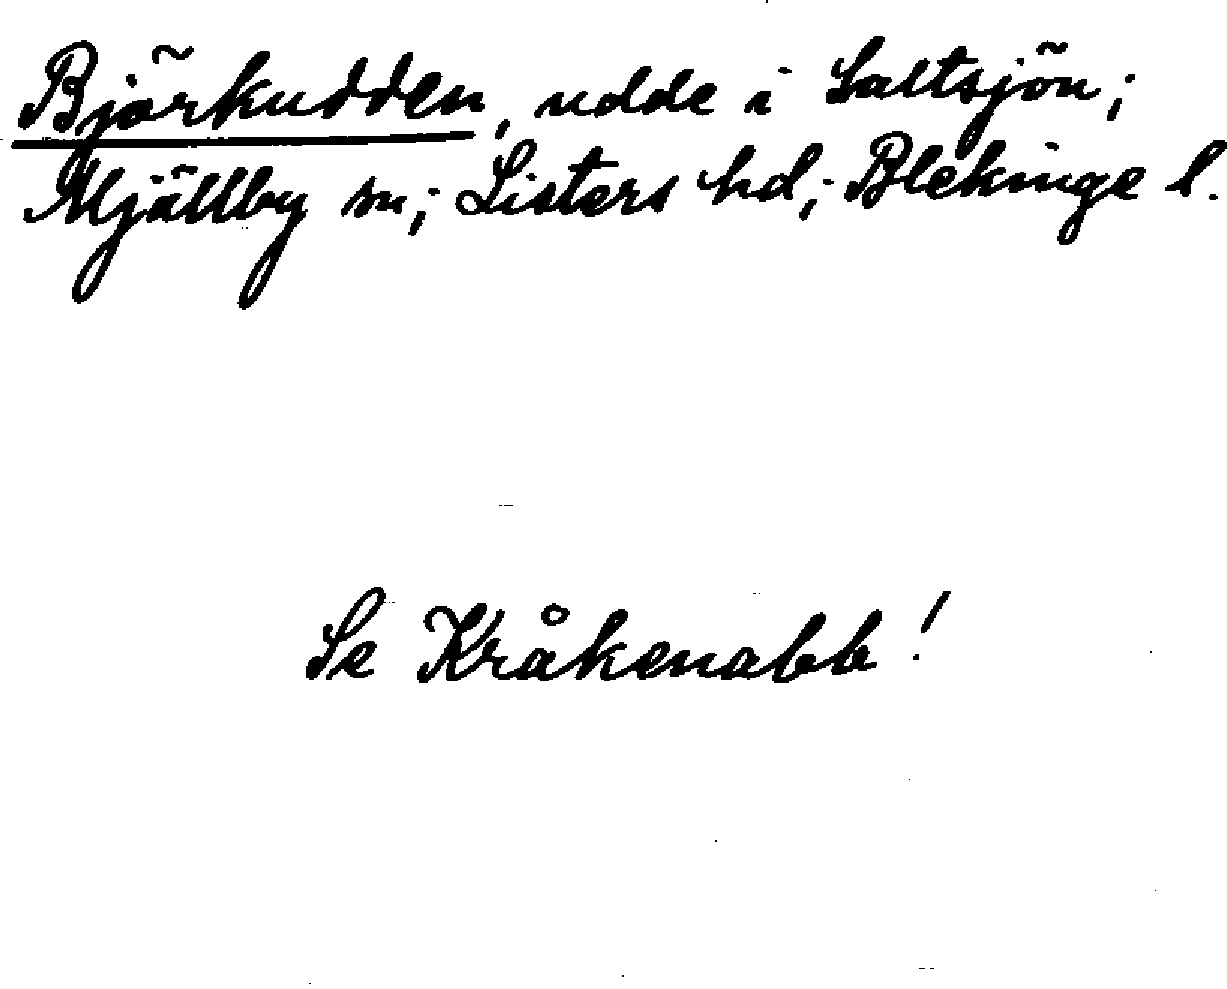 Björkudden, udde i Saltsjön;
Mjällby sn; Listers hd; Blekinge l.
Se Kråkenabb!